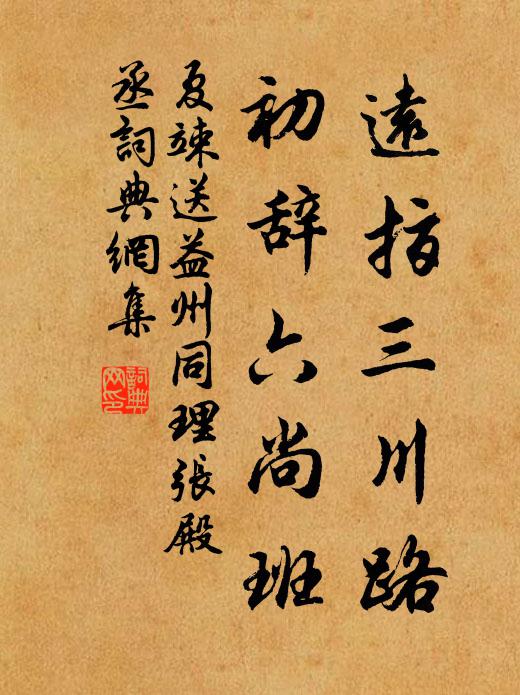 遠指三川路
初辞六尚班
夏竦送益州同理張殿
丞詞典網集
詞典
网印